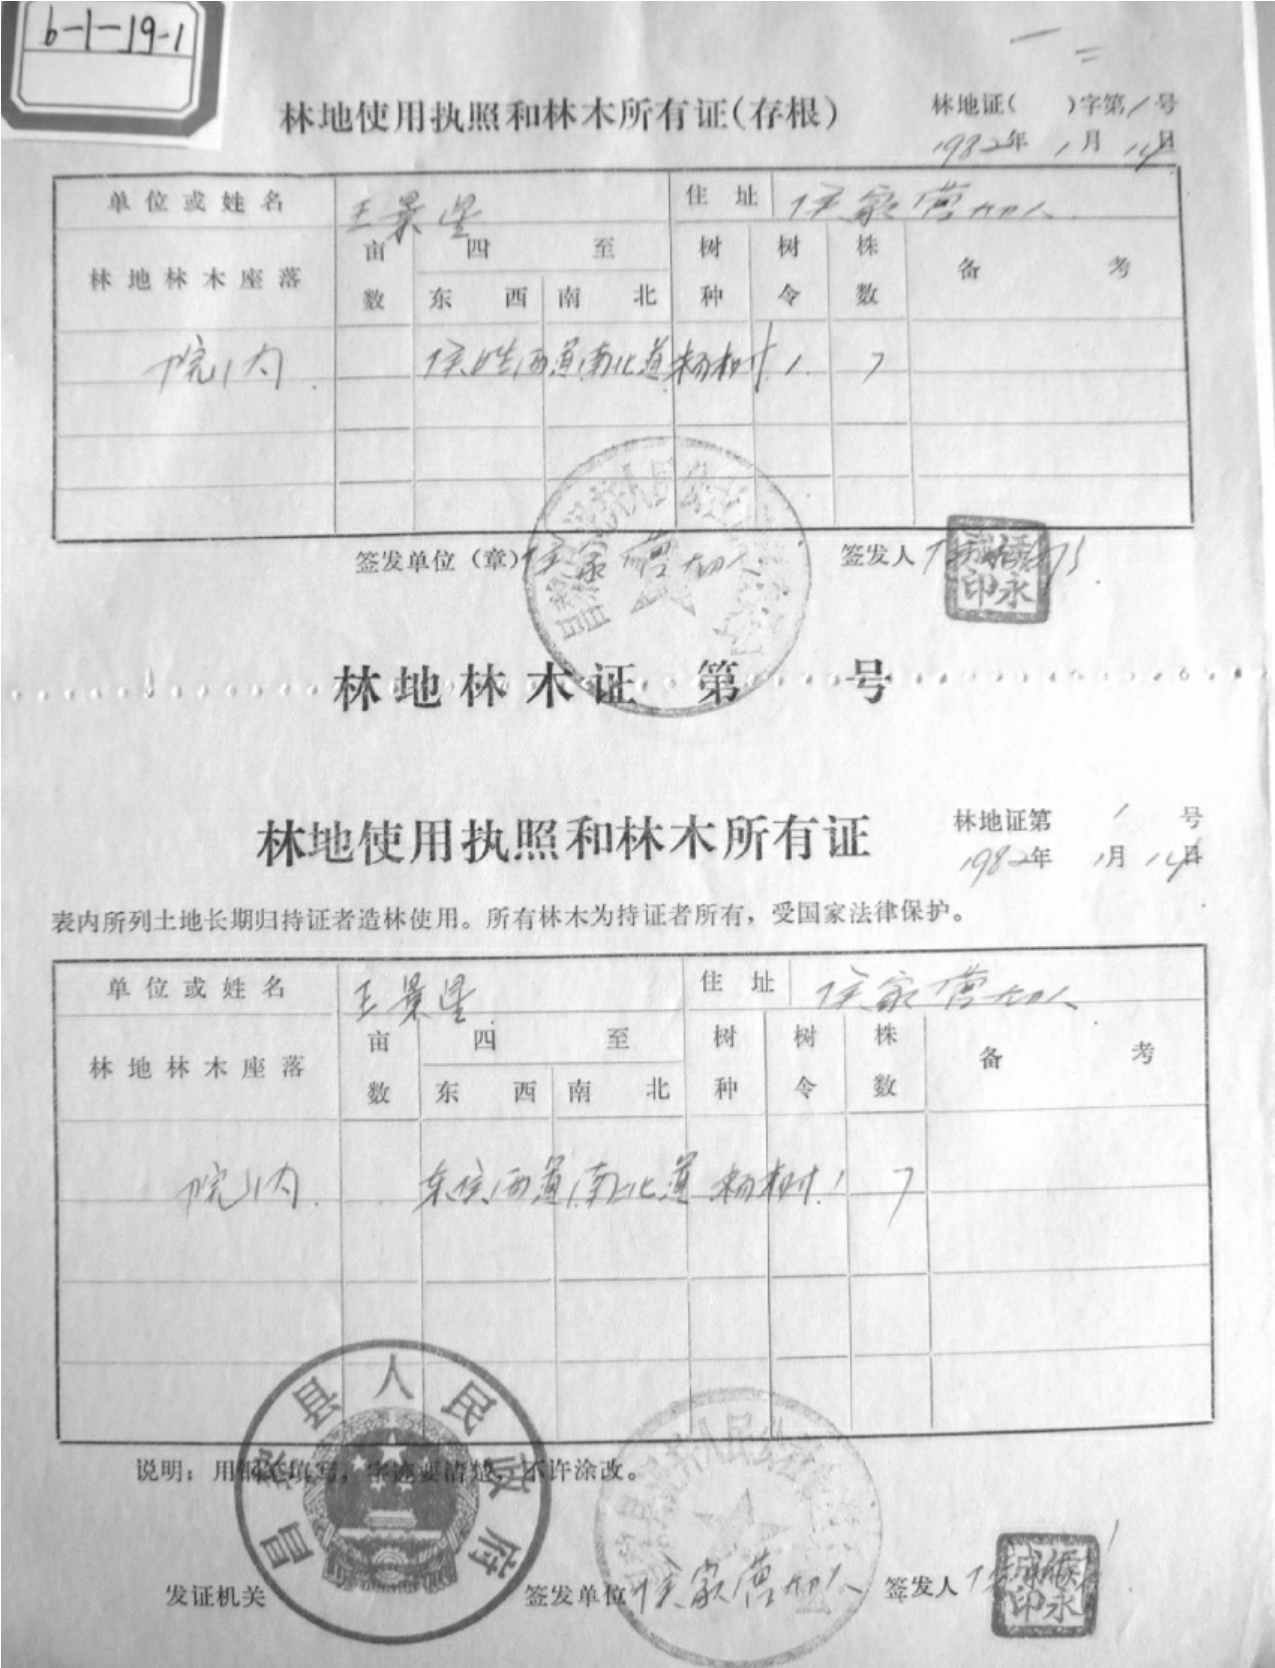 6-1-19-1
林地使用执照和林木所有证(存根)
林地证( )字第1号
1982年1月14日
单位或姓名 王景星 住址 侯家营大队
林地林木座落 亩数 四至 东西 南北 树种 树令 株数 备考
院内 侯姓西道南北道 杨树 1 7
签发单位(章)侯家营大队 签发人 侯永城
侯城永印
林地林木证 第 号
林地使用执照和林木所有证
林地证第 1 号
1982年1月14日
表内所列土地长期归持证者造林使用。所有林木为持证者所有,受国家法律保护。
单位或姓名 王景星 住址 侯家营大队
林地林木座落 亩数 四至 东西 南北 树种 树令 株数 备考
院内 东侯西道南北道 杨树 1 7
说明:用钢笔填写,字迹要清楚,不许涂改。
昌黎县人民政府
发证机关 签发单位 侯家营大队 签发人
侯城永印